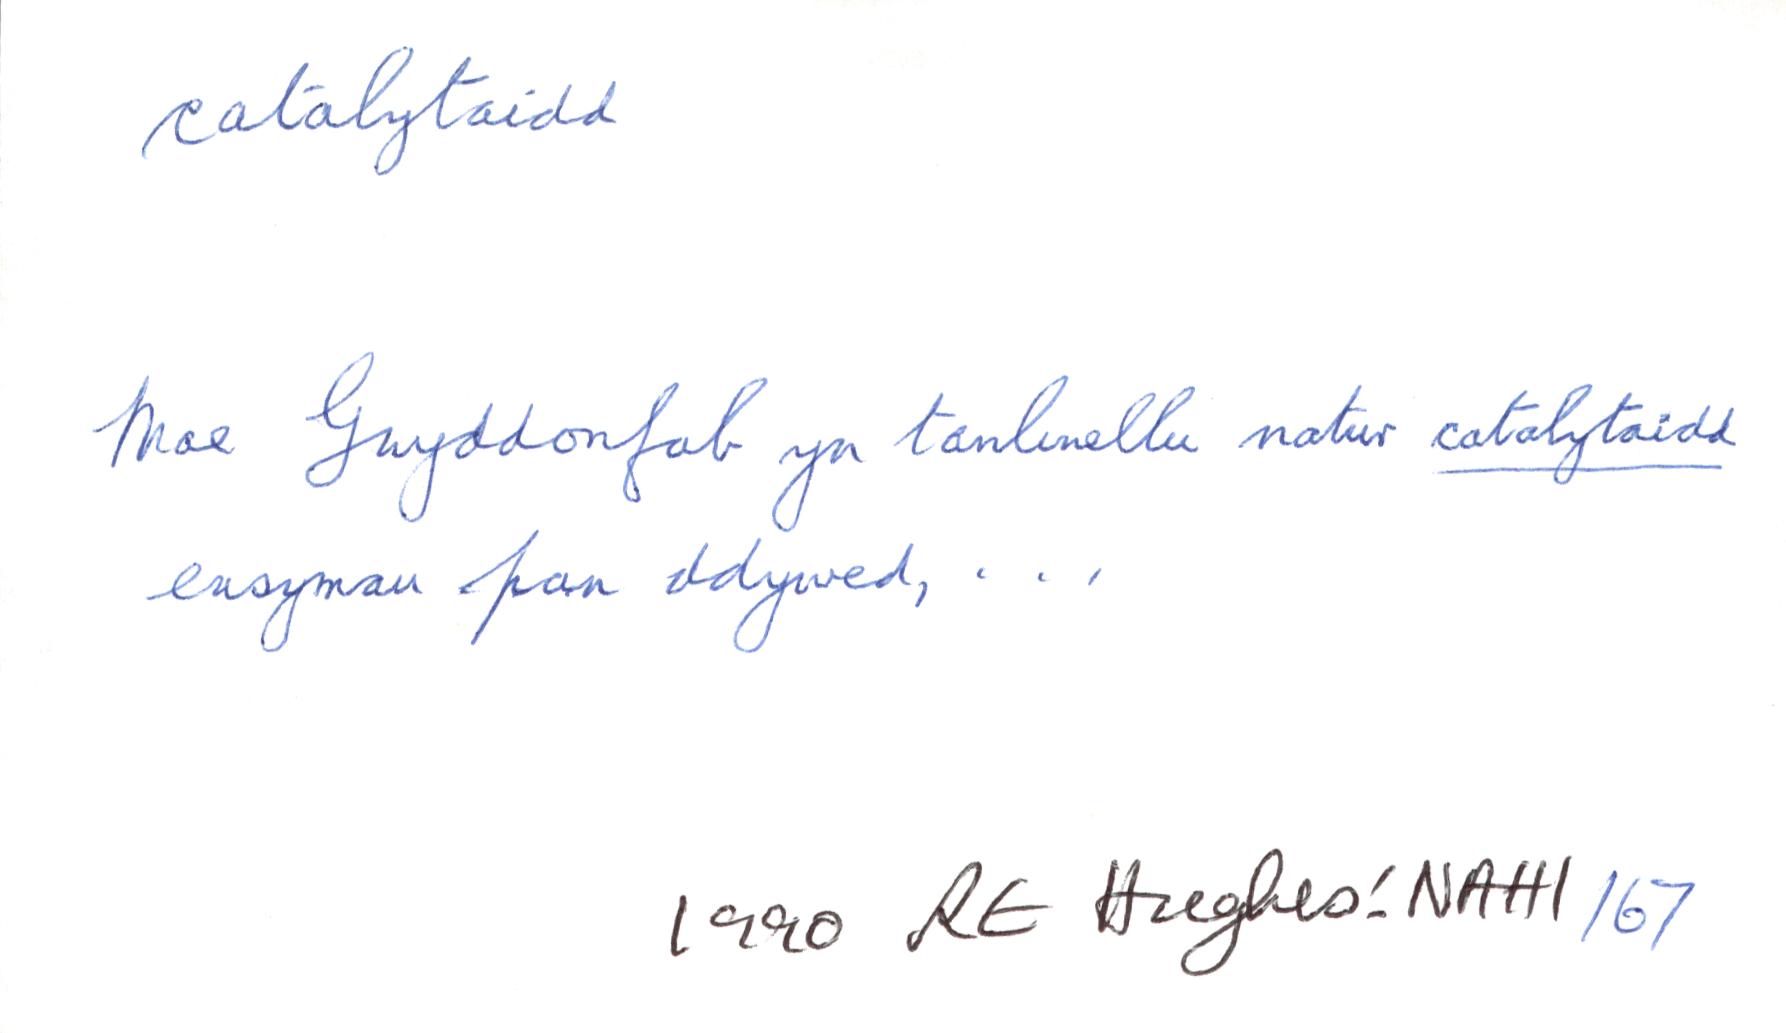 catalytaidd
Mae Gwyddonfab yn tanlinellu natur catalytaidd
ensymau pan ddywed, . . .
1990 RE Hughes: NAHI 167